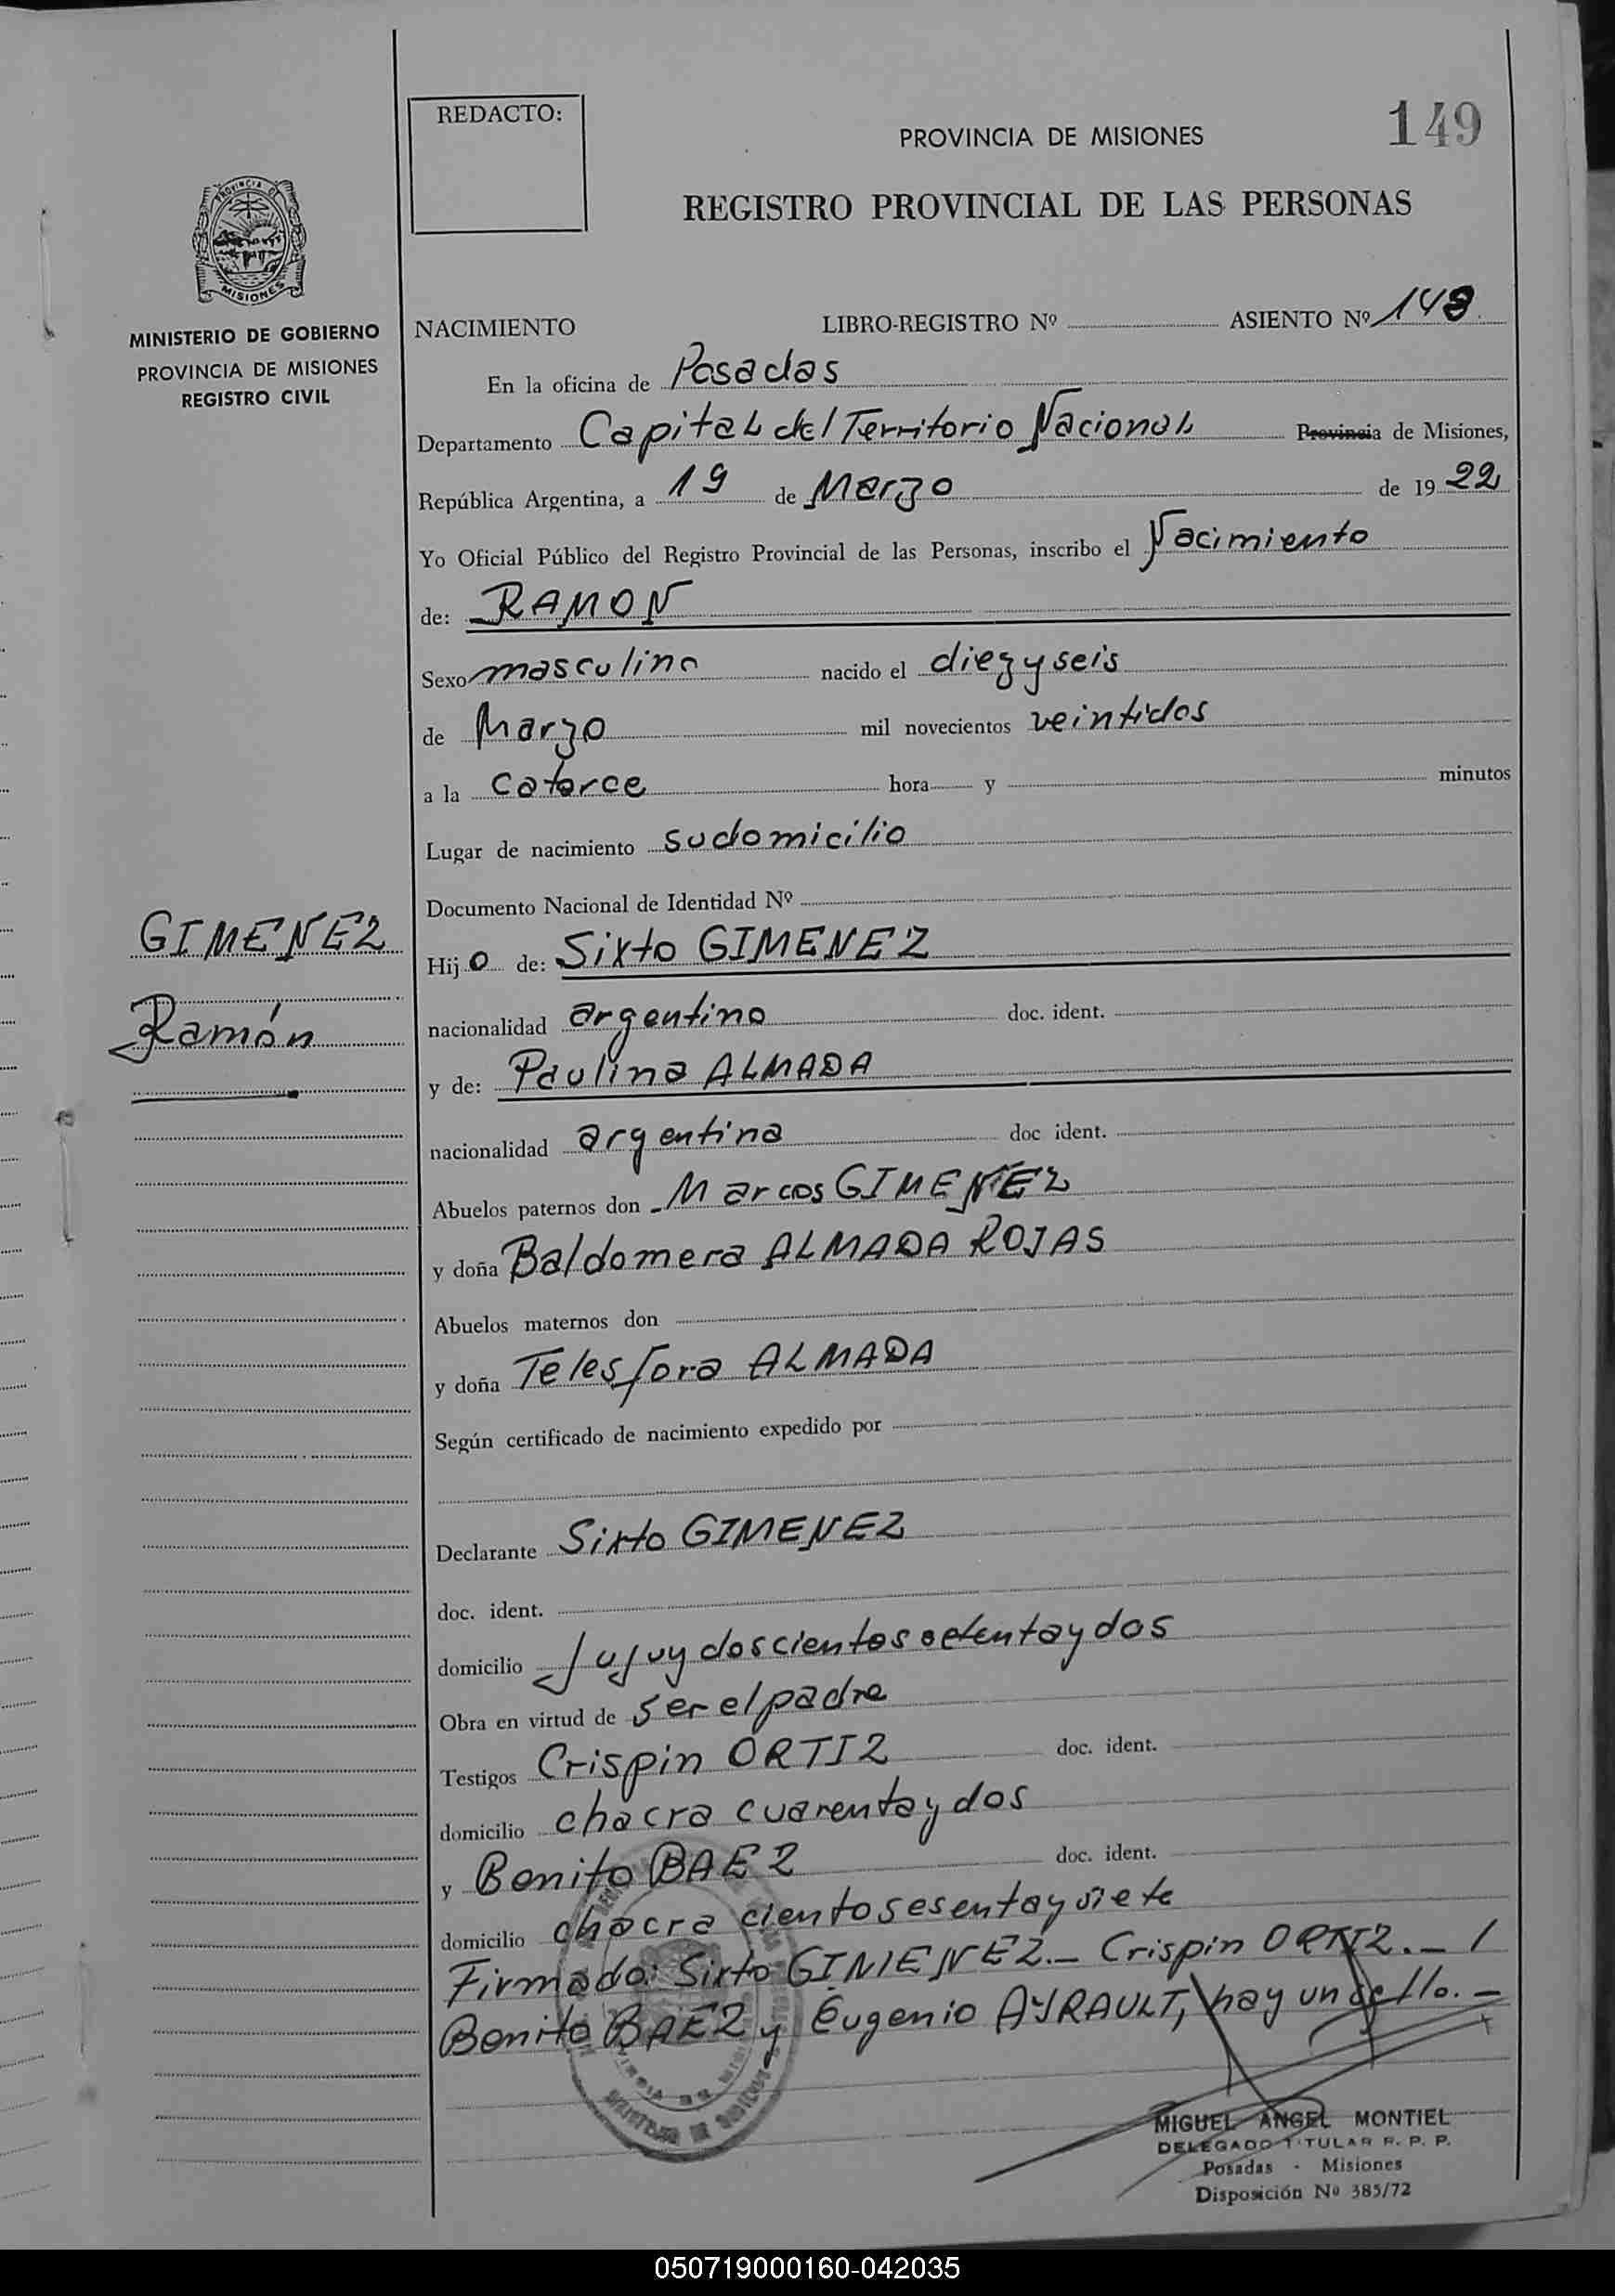 REDACTO:
PROVINCIA DE MISIONES
149
REGISTRO PROVINCIAL DE LAS PERSONAS
MISIONES
MINISTERIO DE GOBIERNO
PROVINCIA DE MISIONES
REGISTRO CIVIL
NACIMIENTO LIBRO-REGISTRO Nº ASIENTO Nº 148
En la oficina de Posadas
Departamento Capital del Territorio Nacional Provincia de Misiones,
República Argentina, a 19 de Marzo de 1922
Yo Oficial Público del Registro Provincial de las Personas, inscribo el Nacimiento
de: RAMON
Sexo masculino nacido el diez y seis
de Marzo mil novecientos veintidos
a la catorce hora y minutos
Lugar de nacimiento su domicilio
Documento Nacional de Identidad Nº
GIMENEZ
Ramón
Hijo de: Sixto GIMENEZ
nacionalidad argentino doc. ident.
y de: Paulina ALMADA
nacionalidad argentina doc ident.
Abuelos paternos don Marcos GIMENEZ
y doña Baldomera ALMADA ROJAS
Abuelos maternos don
y doña Telesfora ALMADA
Según certificado de nacimiento expedido por
Declarante Sixto GIMENEZ
doc. ident.
domicilio Jujuy doscientos setenta y dos
Obra en virtud de ser el padre
Testigos Crispin ORTIZ doc. ident.
domicilio chacra cuarenta y dos
y Benito BAEZ doc. ident.
domicilio chacra ciento sesenta y siete
Firmado: Sixto GIMENEZ.- Crispin ORTIZ.- /
Benito BAEZ y Eugenio AYRAULT, hay un sello.-
MIGUEL ANGEL MONTIEL
DELEGADO TITULAR R. P. P.
Posadas - Misiones
Disposición Nº 385/72
050719000160-042035